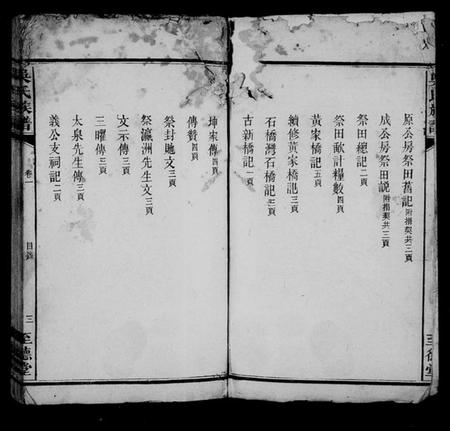 原公房祭田舊記附揭契共三頁
成公房祭田說附揭契共三頁
祭田總記二頁
祭田畝計糧數四頁
黃家橋記五頁
續修黃家橋記三頁
石橋灣石橋記三頁
古新橋記一頁
坤宋傳四頁
傳贊四頁
祭封馳文三頁
祭瀛洲先生文三頁
文示傳三頁
三曜傳三頁
太泉先生傳三頁
義公支祠記二頁
吳氏族譜
卷一
目錄
三
至德堂
吳氏族譜
至德堂